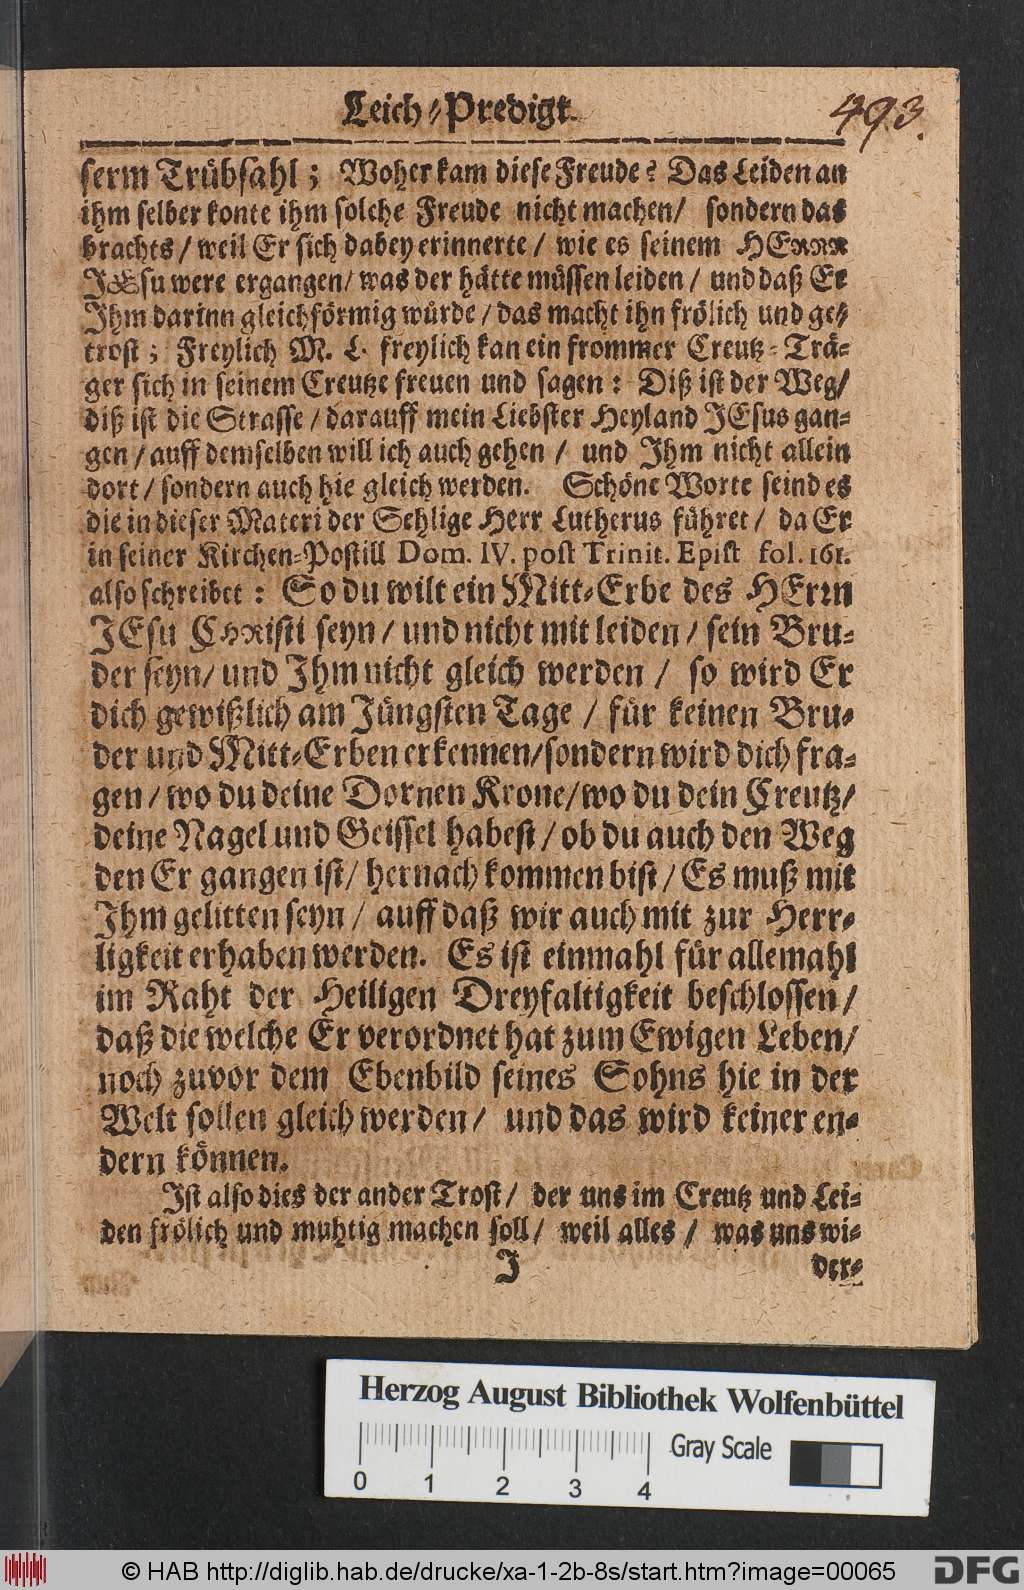 Leich-Predigt.
493.
serm Trübsahl; Woher kam diese Freude? Das Leiden an
ihm selber konte ihm solche Freude nicht machen/ sondern das
brachts/ weil Er sich dabey erinnerte/ wie es seinem HErrn
JEsu were ergangen/ was der hätte müssen leiden/ und daß Er
Ihm darinn gleichförmig würde/ das macht ihn frölich und ge-
trost; Freylich M. L. freylich kan ein frommer Creutz-Trä-
ger sich in seinem Creutze freuen und sagen: Diß ist der Weg/
diß ist die Strasse/ darauff mein Liebster Heyland JEsus gan-
gen/ auff demselben will ich auch gehen/ und Ihm nicht allein
dort/ sondern auch hie gleich werden. Schöne Worte seind es
die in dieser Materi der Sehlige Herr Lutherus führet/ da Er
in seiner Kirchen-Postill Dom. IV. post Trinit. Epist fol. 161.
also schreibet: So du wilt ein Mitt-Erbe des HErrn
JEsu CHRisti seyn/ und nicht mit leiden/ sein Bru-
der seyn/ und Ihm nicht gleich werden/ so wird Er
dich gewißlich am Jüngsten Tage/ für keinen Bru-
der und Mitt-Erben erkennen/ sondern wird dich fra-
gen/ wo du deine Dornen Krone/ wo du dein Creutz/
deine Nagel und Geissel habest/ ob du auch den Weg
den Er gangen ist/ hernach kommen bist/ Es muß mit
Ihm gelitten seyn/ auff daß wir auch mit zur Herr-
ligkeit erhaben werden. Es ist einmahl für allemahl
im Raht der Heiligen Dreyfaltigkeit beschlossen/
daß die welche Er verordnet hat zum Ewigen Leben/
noch zuvor dem Ebenbild seines Sohns hie in der
Welt sollen gleich werden/ und das wird keiner en-
dern können.
Ist also dies der ander Trost/ der uns im Creutz und Lei-
den frölich und muhtig machen soll/ weil alles/ was uns wi-
J der-
Herzog August Bibliothek Wolfenbüttel
Gray Scale
0 1 2 3 4
© HAB http://diglib.hab.de/drucke/xa-1-2b-8s/start.htm?image=00065
DFG